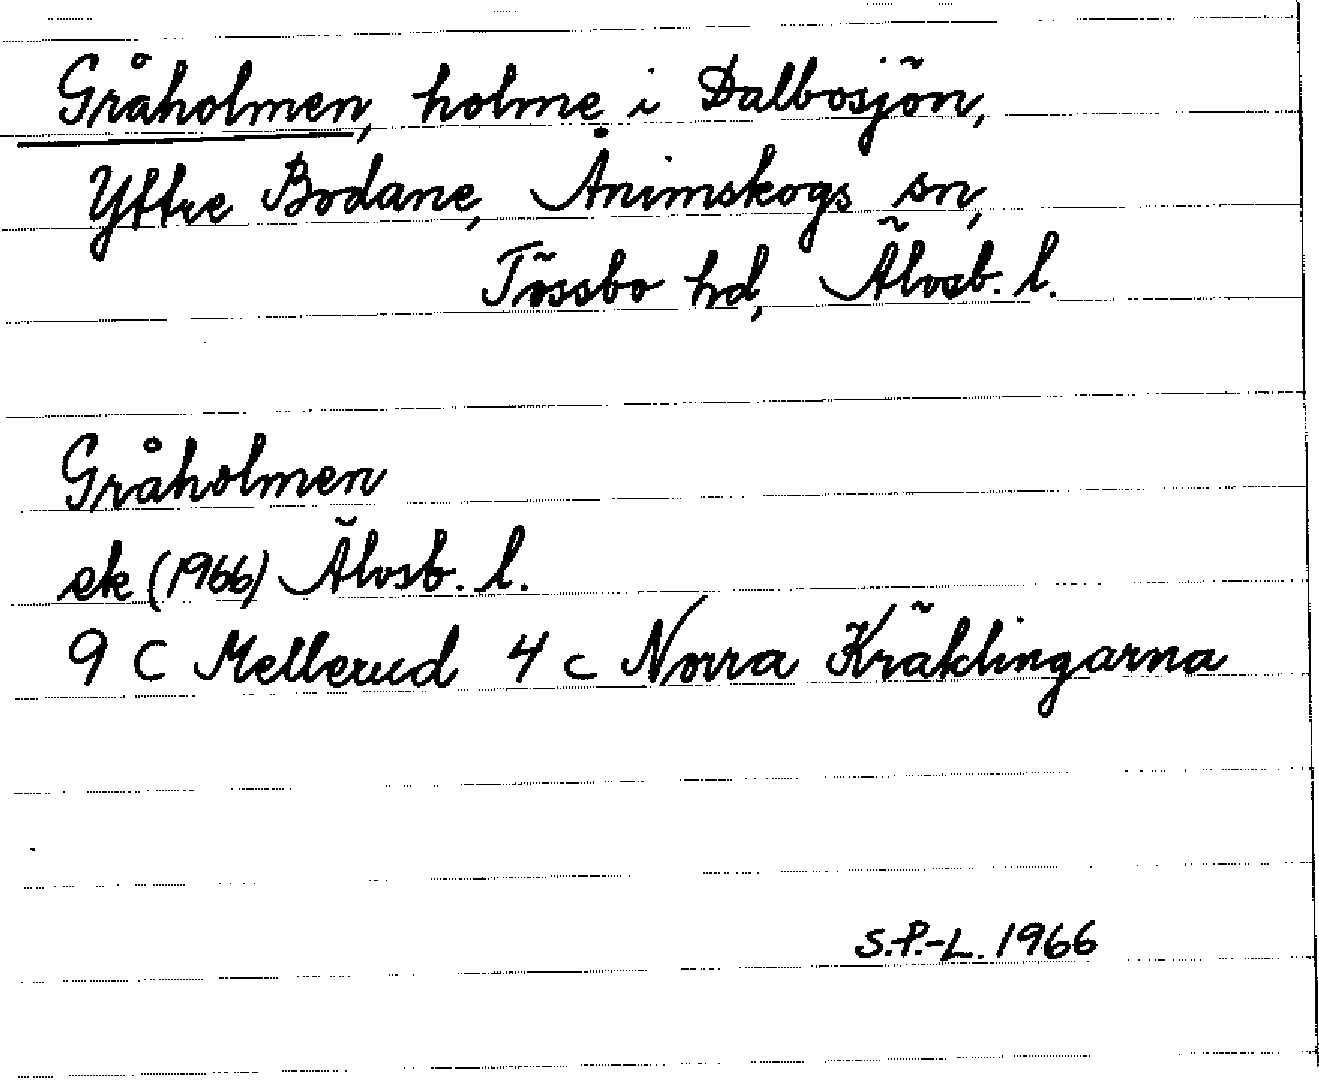 Gråholmen, holme i Dalbosjön,
Yttre Bodane, Ånimskogs sn,
Tössbo hd, Älvsb. l.
Gråholmen
ek (1966) Älvsb. l.
9 C Mellerud 4 c Norra Kräklingarna
S.-P.-L. 1966